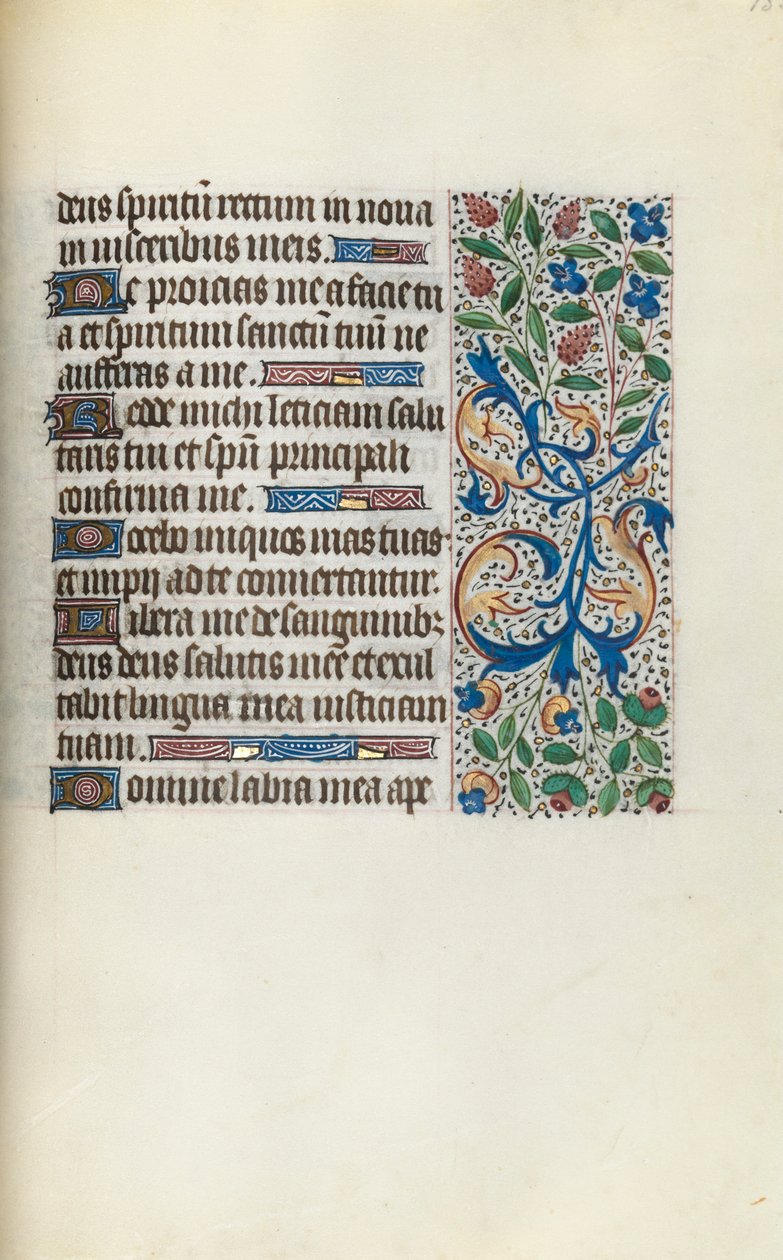 deus spiritū rectum in noua
in uisceribus meis.
Ne proicias me a facie tu
a et spiritum sanctū tuū ne
aufferas a me.
Redde michi leticiam salu
taris tui et spū principali
confirma me.
Docebo iniquos uias tuas
et impij ad te conuertantur.
Libera me de sanguinibꝫ
deus deus salutis meē et exul
tabit lingua mea iusticiam
tuam.
Domine labia mea ape